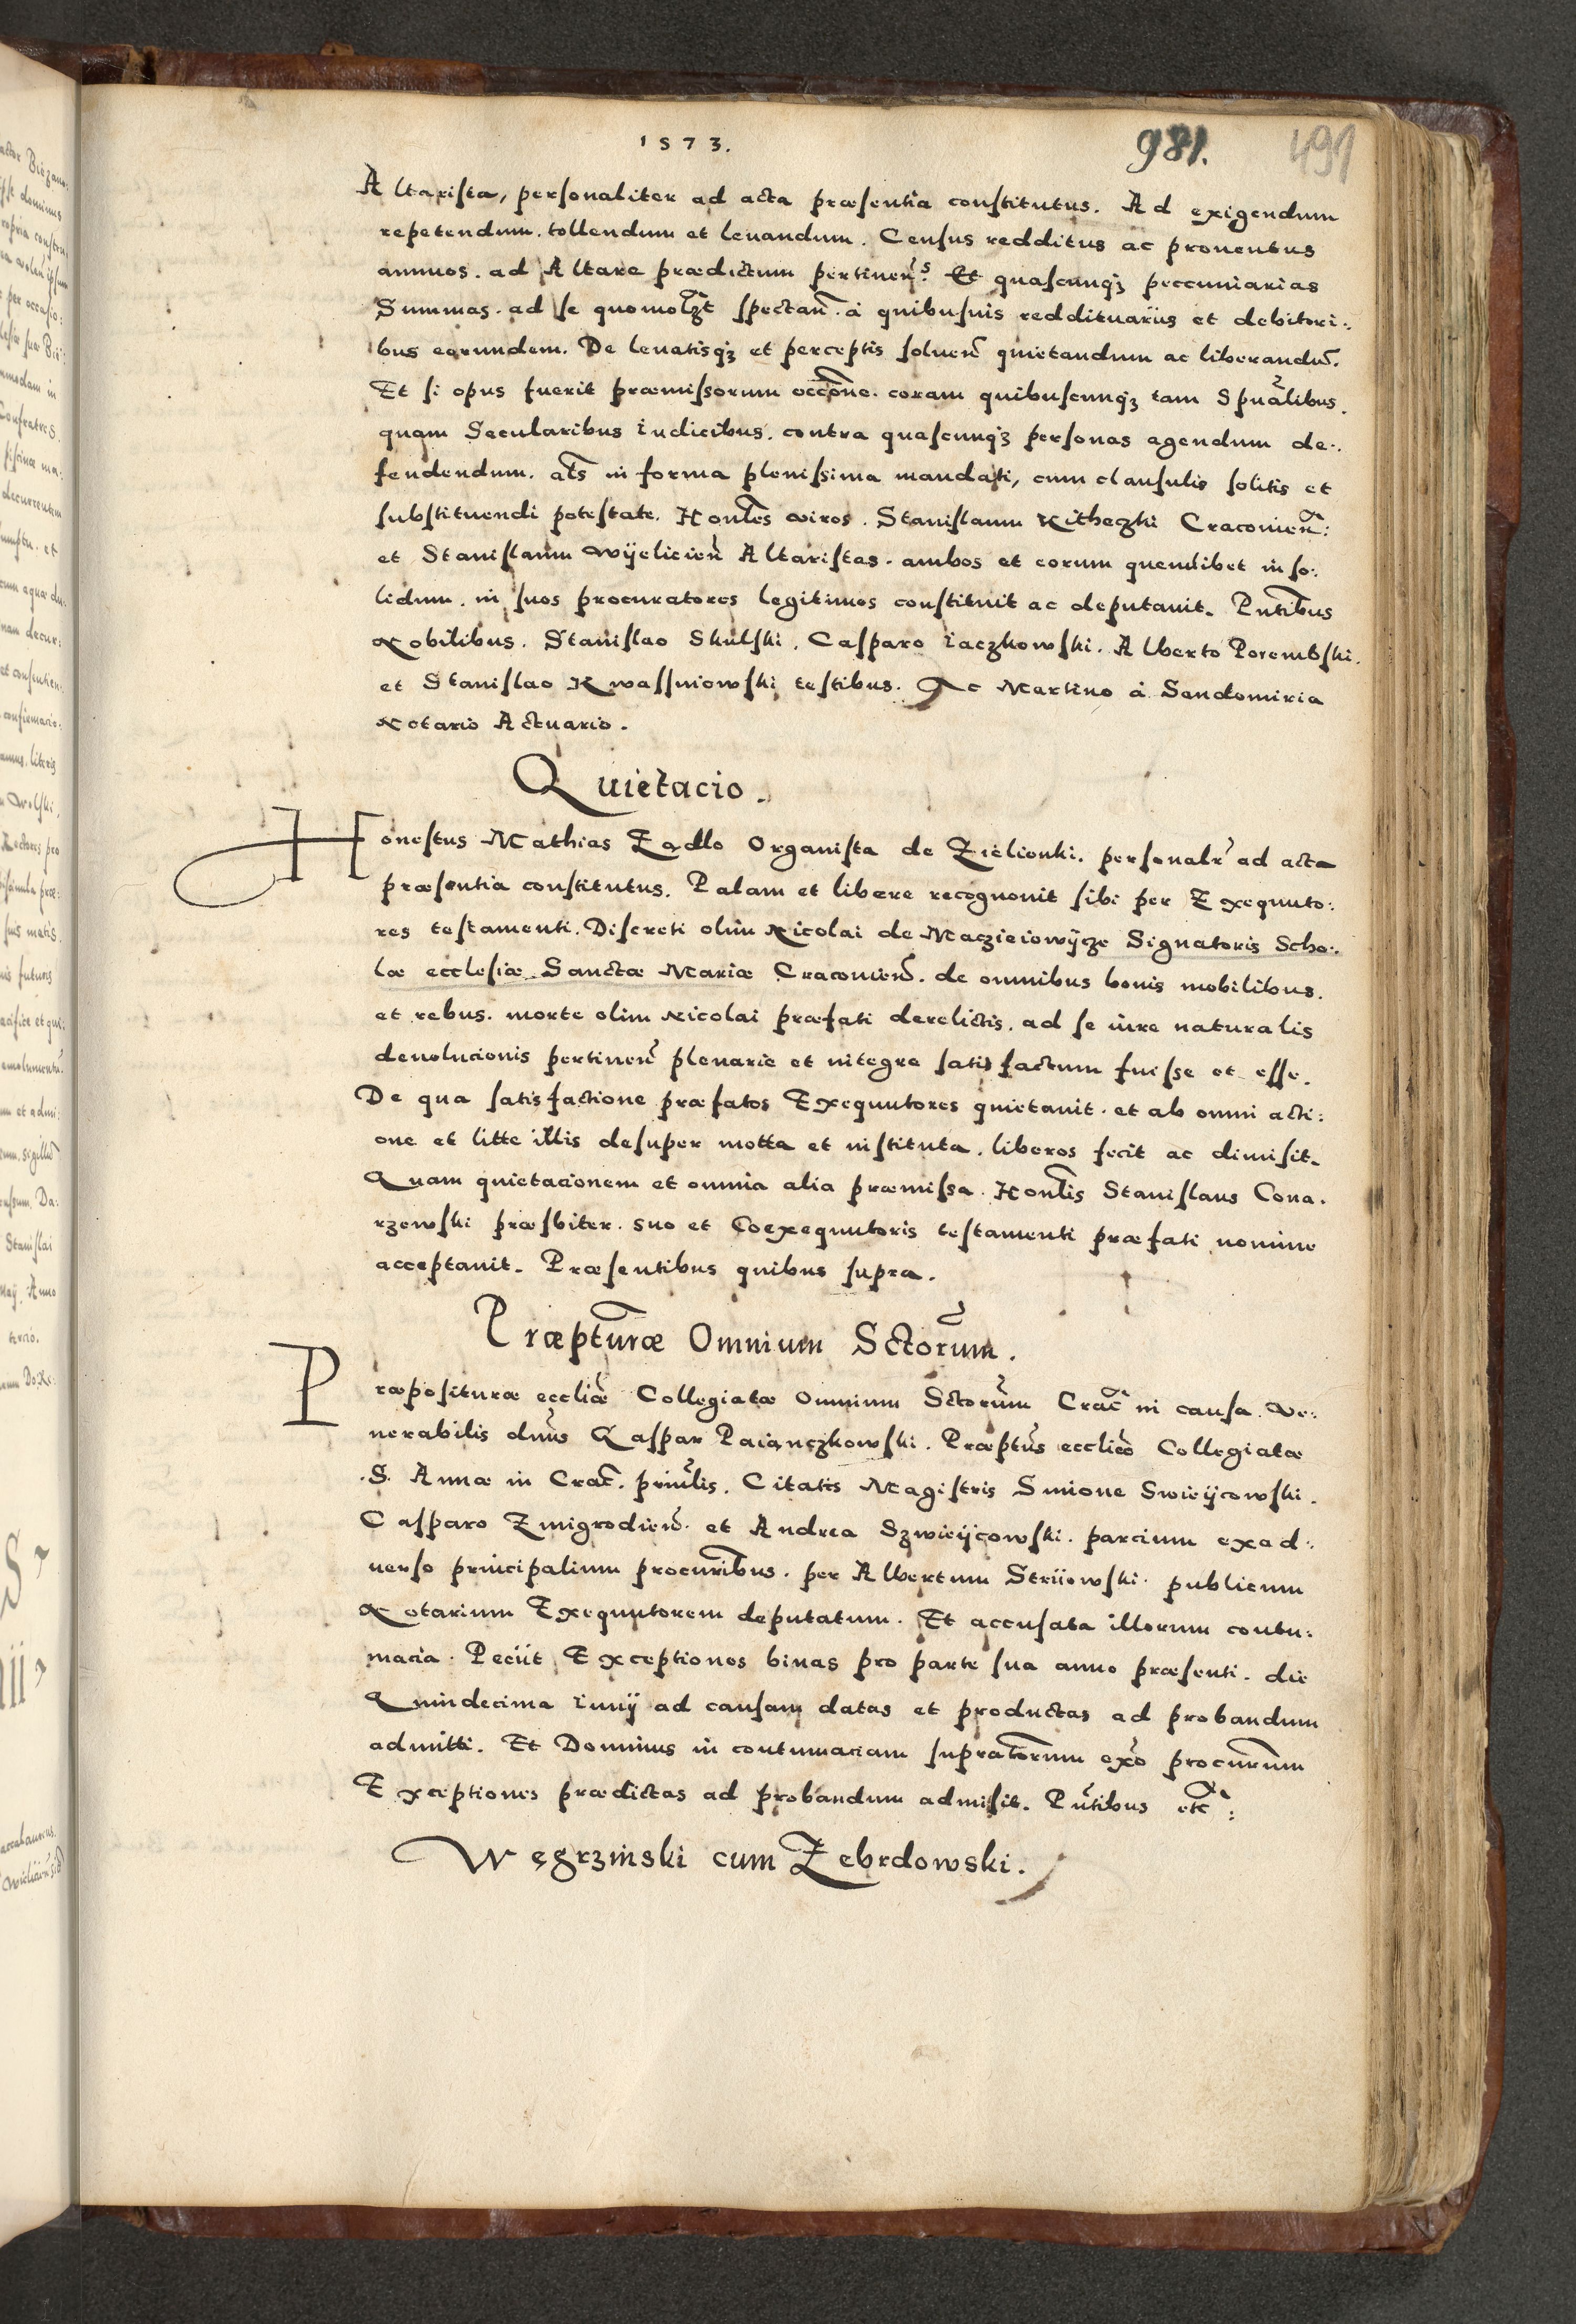 1573.
981.
491
Altarista, personaliter ad acta præsentia constitutus. Ad exigendum
repetendum. tollendum et leuandum. Census redditus ac prouentus
annuos. ad Altare prædictum pertinen̄s. Et quascunqȝ peccuniarias
Summas. ad se quomolȝt spectan̄. à quibusuis reddituariis et debitori:
bus eorundem. De leuatisqȝ et perceptis soluen̄ quietandum ac liberandū.
Et si opus fuerit præmissorum occōne. coram quibuscunqȝ tam Spūalibus.
quam Secularibus iudicibus. contra quascunqȝ personas agendum de:
fendendum. al̄s in forma plenissima mandati, cum clausulis solitis et
substituendi potestate. Hon̄les viros. Stanislaum Kitheczki Cracouien̄:
et Stanislaum Wijelicien̄ Altaristas. ambos et eorum quemlibet in so:
lidum. in suos procuratores legitimos constituit ac deputauit. Pn̄tibus
Nobilibus. Stanislao Skulski. Casparo Iaczkowski. Alberto Porembski.
et Stanislao Kwassniowski testibus. Ac Martino à Sendomiria
Notario Actuario.
Quietacio.
Honestus Mathias Ządlo Organista de Zielionki. personalr̄ ad acta
præsentia constitutus. Palam et libere recognouit sibi per Exequuto:
res testamenti. Discreti olim Nicolai de Maczieiowijcze Signatoris Scho:
læ ecclesiæ Sanctæ Mariæ Cracouien̄. de omnibus bonis mobilibus.
et rebus. morte olim Nicolai præfati derelictis. ad se iure naturalis
deuolucionis pertinen̄ plenarie et integre satisfactum fuisse et esse.
De qua satisfactione præfatos Exequutores quietauit. et ab omni acti:
one et litte illis desuper motta et instituta. liberos fecit ac dimisit.
Quam quietacionem et omnia alia præmissa. Hon̄lis Stanislaus Cona.
rzewski præsbiter. suo et Coexequutoris testamenti præfati nomine
acceptauit. Præsentibus quibus supra.
Præptūræ Omnium Sctorūm.
Præposituræ eccliǣ Collegiatæ Omnium Sctorūm Crac̄ in causa. Ve:
nerabilis dn̄us Gaspar Paiąnczkowski. Præptūs eccliǣ Collegiatæ
.S. Annæ in Crac̄. prin̄lis. Citatis Magistris Simone Swieijcowski.
Casparo Zmigrodien̄. et Andrea Szwieijcowski. parcium exad:
uerso principalium procurībus. per Albertum Striiowski. publicum
Notarium Exequutorem deputatum. Et accusata illorum contu:
macia. Peciit Exceptiones binas pro parte sua anno præsenti. die
Quindecima Iunij ad causam datas et productas ad probandum
admitti. Et Dominus in contumaciam supratōrum exō procurūm
Exceptiones prædictas ad probandum admisit. Pn̄tibus etc̄:
Węgrzinski cum Zebrdowski.